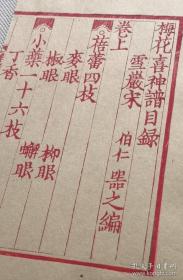 梅花喜神譜目錄
卷上
雪巖宋 伯仁 器之編
蓓蕾四枝
麥眼 柳眼
椒眼 蠏眼
小蘂一十六枝
丁香